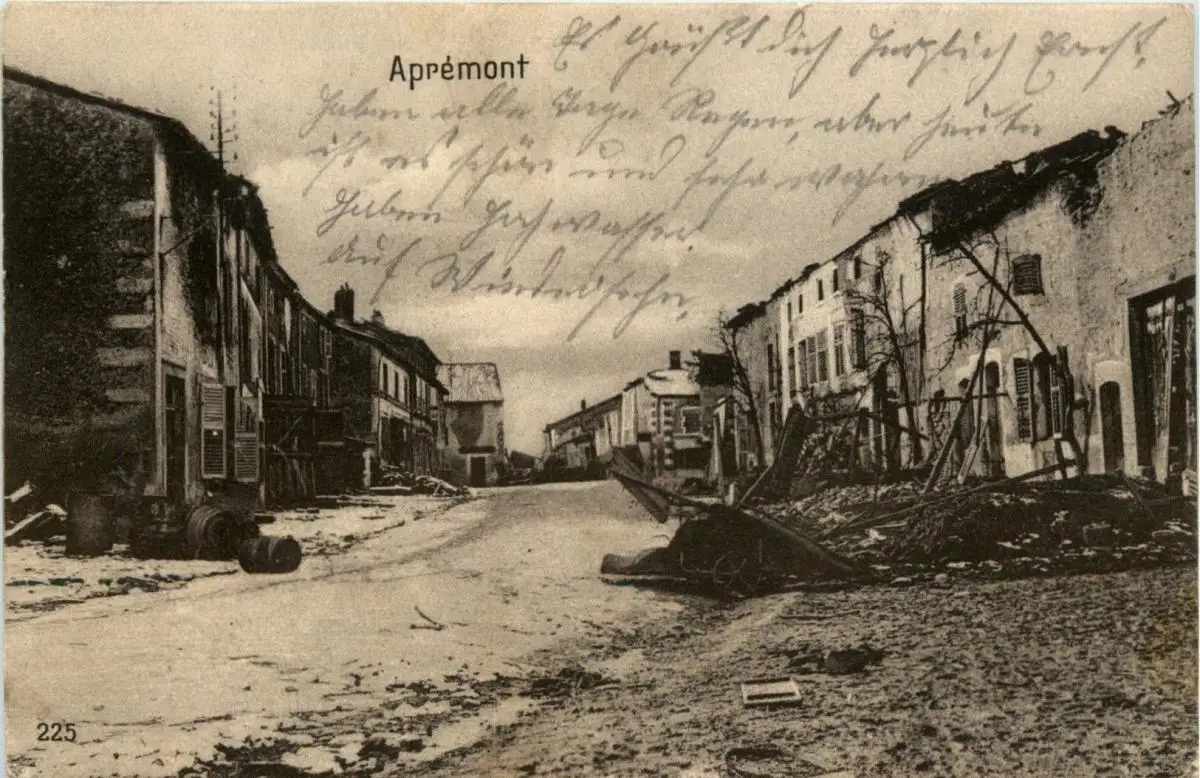 Aprémont
Es grüßt dich herzlich Ernst,
Haben alle Tage Regen, aber heute
ist es schön und sehr
Haben Hochwasser.
Auf Wiedersehn,
225